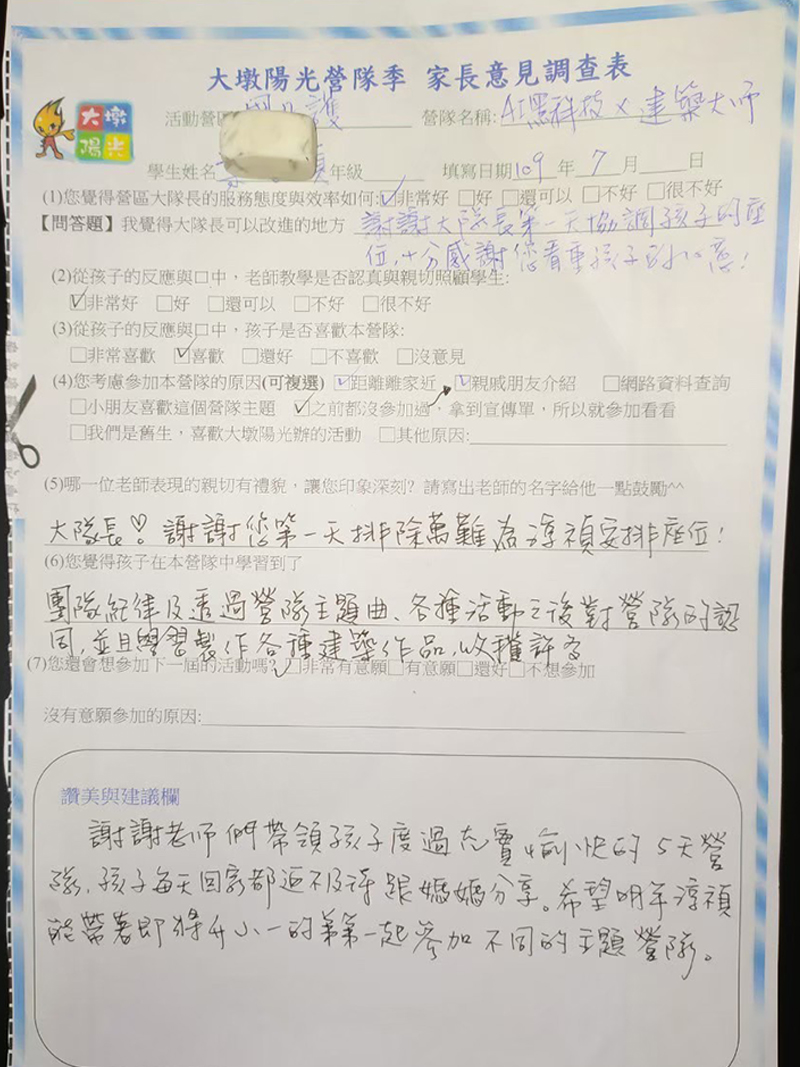 大墩陽光營隊季 家長意見調查表
大墩
陽光
活動營區 護 營隊名稱: AI黑科技 x 建築大师
學生姓名 年級 填寫日期109 年 7 月 日
(1)您覺得營區大隊長的服務態度與效率如何:☑非常好 □好 □還可以 □不好 □很不好
【問答題】我覺得大隊長可以改進的地方 謝謝大隊長第一天協調孩子的座
位,十分感謝您看重孩子的心意!
(2)從孩子的反應與口中,老師教學是否認真與親切照顧學生:
☑非常好 □好 □還可以 □不好 □很不好
(3)從孩子的反應與口中,孩子是否喜歡本營隊:
□非常喜歡 ☑喜歡 □還好 □不喜歡 □沒意見
(4)您考慮參加本營隊的原因(可複選) ☑距離離家近 ☑親戚朋友介紹 □網路資料查詢
□小朋友喜歡這個營隊主題 ☑之前都沒參加過,拿到宣傳單,所以就參加看看
□我們是舊生,喜歡大墩陽光辦的活動 □其他原因:
(5)哪一位老師表現的親切有禮貌,讓您印象深刻? 請寫出老師的名字給他一點鼓勵^^
大隊長♡!謝謝您第一天排除萬難為淳禎安排座位!
(6)您覺得孩子在本營隊中學習到了
團隊紀律及透過營隊主題曲、各種活動之後對營隊的認
同,並且學習製作各種建築作品,收穫許多
(7)您還會想參加下一屆的活動嗎?☑非常有意願□有意願□還好□不想參加
沒有意願參加的原因:
讚美與建議欄
謝謝老师們帶領孩子度過充實愉快的5天營
隊,孩子每天回家都迫不及待跟媽媽分享。希望明年淳禎
能帶著即將升小一的弟弟一起參加不同的主題營隊。